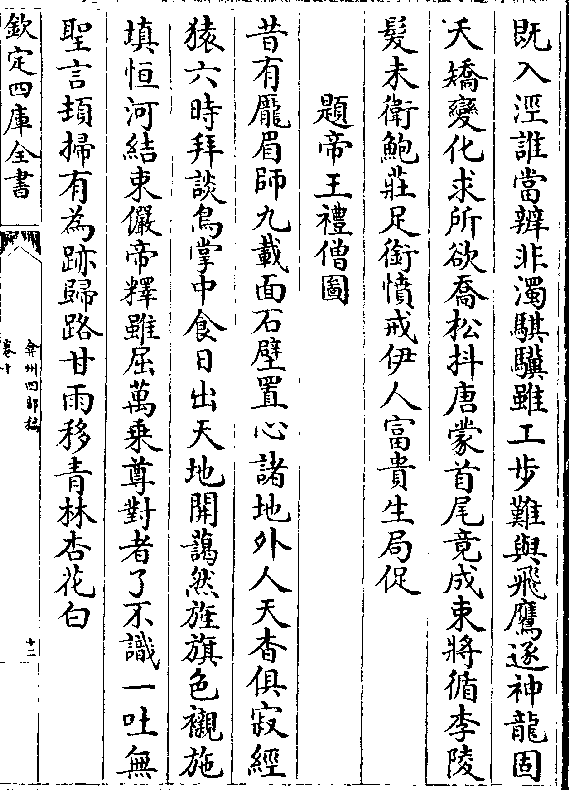 既入涇誰當辨非濁騏驥雖工步難與飛鷹逐神龍固
夭矯變化求所欲喬松抖唐蒙首尾竟成束將循李陵
髮未衛鮑莊足銜憤戒伊人富貴生局促
題帝王禮僧圖
昔有龐眉師九載面石壁置心諸地外人天杳俱寂經
猿六時拜談鳥掌中食日出天地開藹然旌旗色襯施
填恒河結束儼帝釋雖屈萬乘尊對者了不識一吐無
聖言頓掃有為跡歸路甘雨移青林杏花白
欽定四庫全書
弇州四部稿
卷十
十二